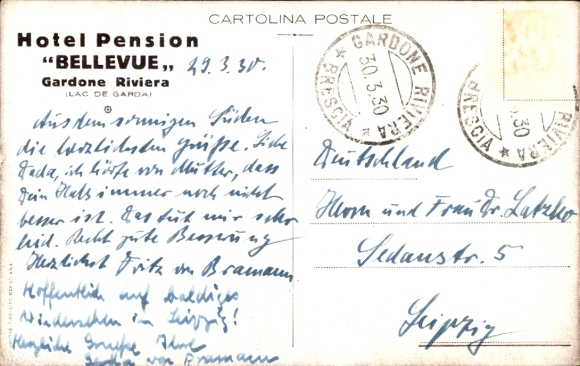 CARTOLINA POSTALE
Hotel Pension
"BELLEVUE„
Gardone Riviera
(LAC DE GARDA)
29.3.30.
Aus dem sonnigen Süden
die herzlichsten Grüße. Liebe
Dada, ich hörte von Mutter, dass
Dein Hals immer noch nicht
besser ist. Das tut mir sehr
leid. Recht gute Besserung
Herzlichst Fritz von Bramann
Hoffentlich auf baldiges
Wiedersehen in Leipzig!
Herzliche Grüsse Ihre
von Bramann
GARDONE RIVIERA
30.3.30
BRESCIA
GARDONE RIVIERA
30.3.30
BRESCIA
Deutschland
Herrn und Frau Dr. Latzko
Sedanstr. 5
Leipzig